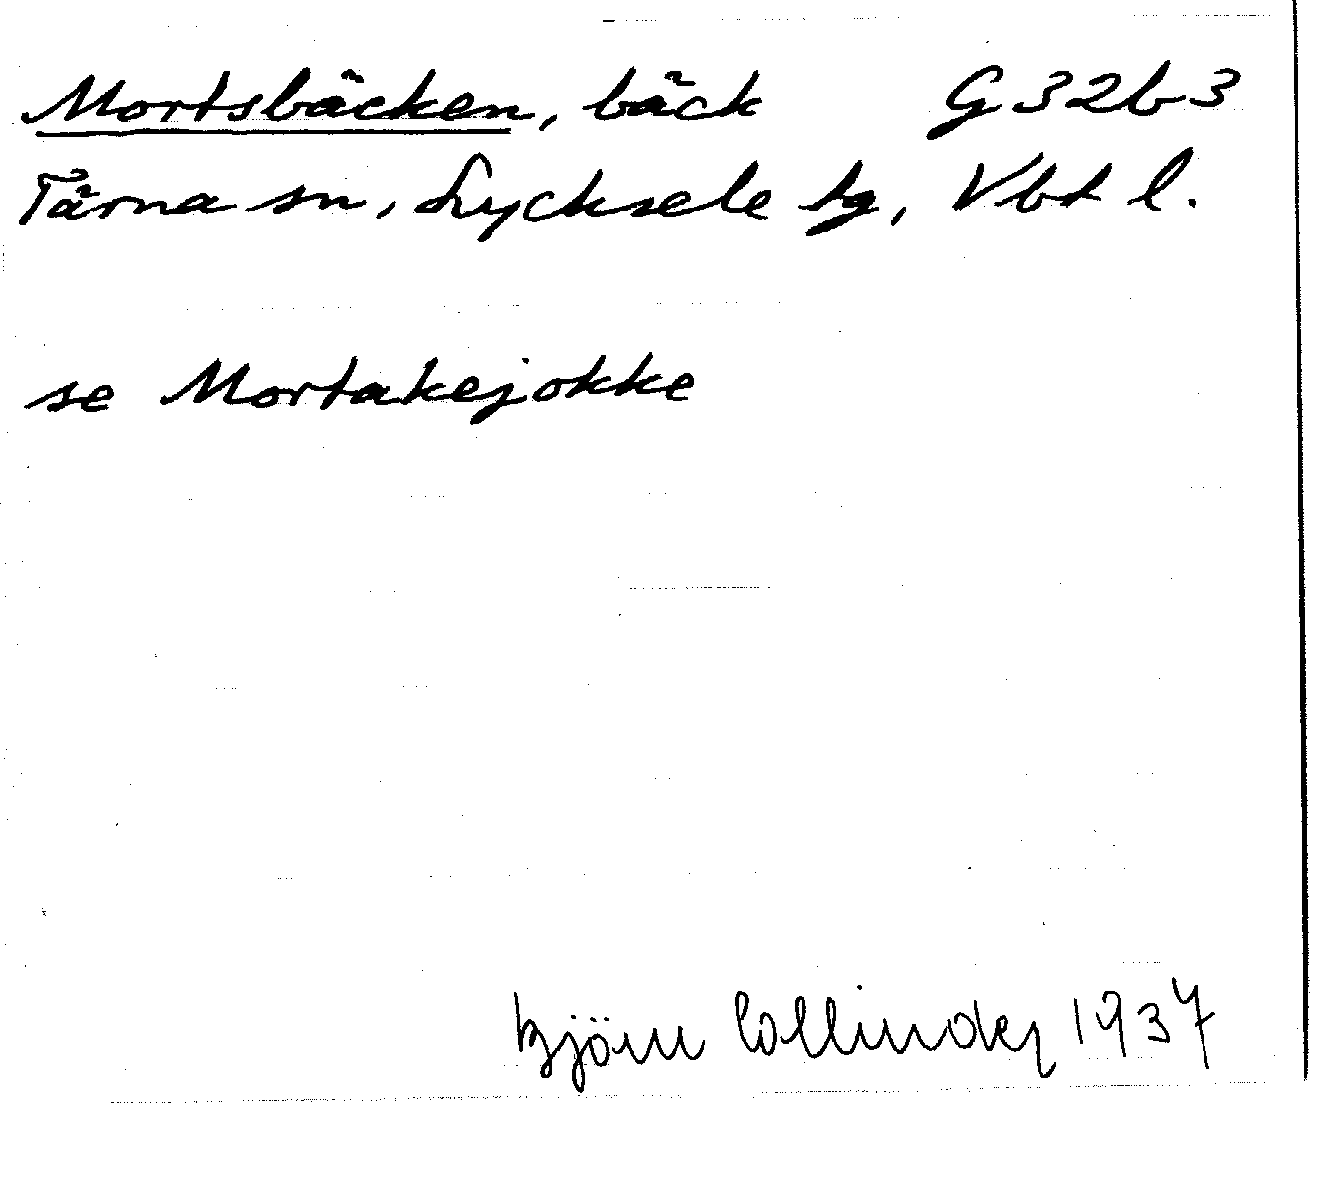 Mortsbäcken, bäck G 32 b 3
Tärna sn, Lycksele tg, Vbt l.
se Mortakejokke
Björn Collinder 1937